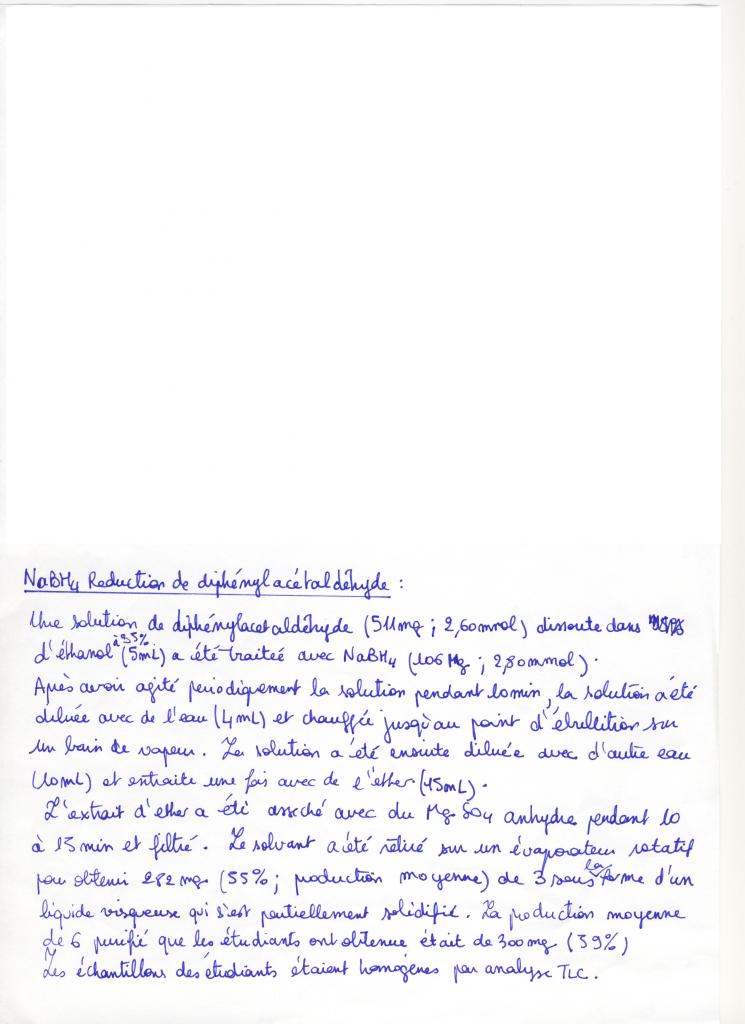 NaBH4 Reduction de diphénylacétaldéhyde :
Une solution de diphénylacetaldéhyde (511mg ; 2,60mmol) dissoute dans
d'éthanol à 95% (5mL) a été traiteé avec NaBH4 (106 Mg ; 2,80mmol).
Après avoir agité periodiquement la solution pendant 10min, la solution a été
diluée avec de l'eau (4mL) et chauffée jusqu'au point d'ébullition sur
un bain de vapeur. La solution a été ensuite diluée avec d'autre eau
(10mL) et extraite une fois avec de l'éther (15mL).
L'extrait d'ether a été asséché avec du MgSO4 anhydre pendant 10
à 15 min et filtré. Le solvant a été retiré sur un évaporateur rotatif
pour obtenir 282 mg (55% ; production moyenne) de 3 sous la forme d'un
liquide visqueuse qui s'est partiellement solidifié. La production moyenne
de 6 purifié que les étudiants ont obtenue était de 300mg (59%)
Les échantillons des étudiants étaient homogènes par analyse TLC.